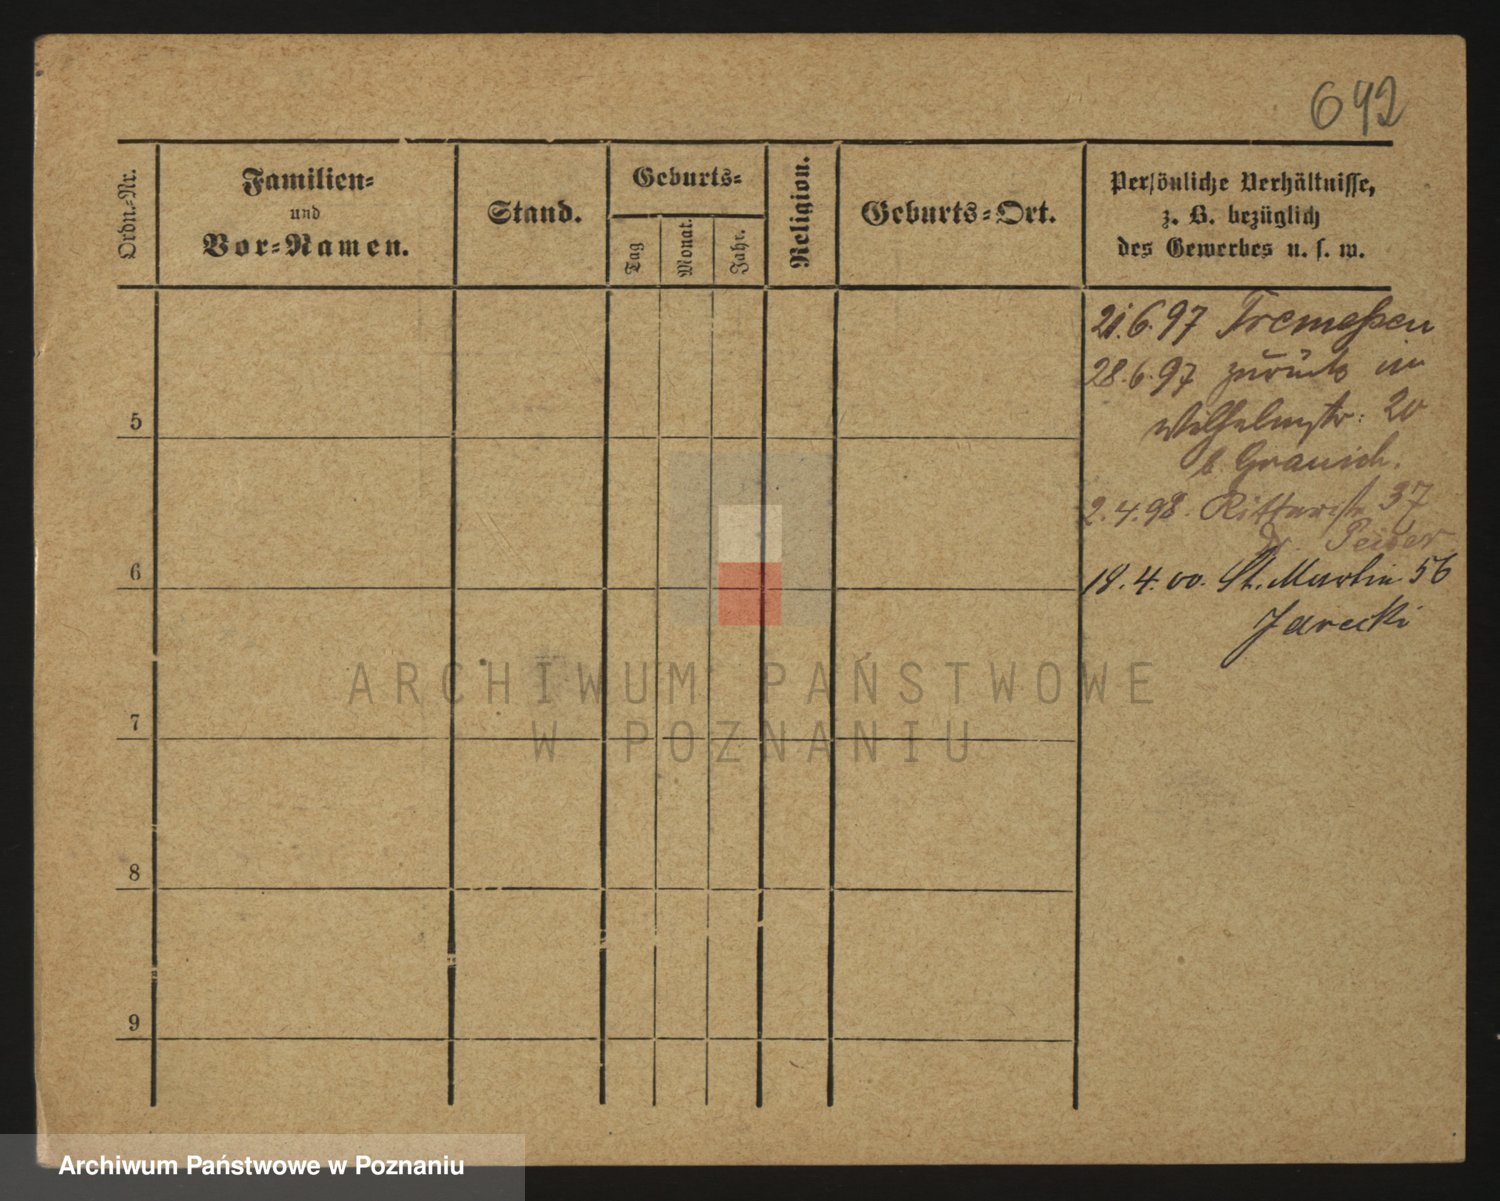 642
Ordn.-Nr.
Familien-
und
Vor-Namen.
Stand.
Geburts-
Tag
Monat.
Jahr.
Religion.
Geburts-Ort.
Persönliche Verhältnisse,
z. B. bezüglich
des Gewerbes u. s. w.
21.6.97 Tremeßen
28.6.97 zurück in
Wilhelmstr: 20
b
2.4.98. Ritterstr 37
18.4.00. St. Martin 56
Jarecki
5
6
7
8
9
ARCHIWUM PAŃSTWOWE
W POZNANIU
Archiwum Państwowe w Poznaniu